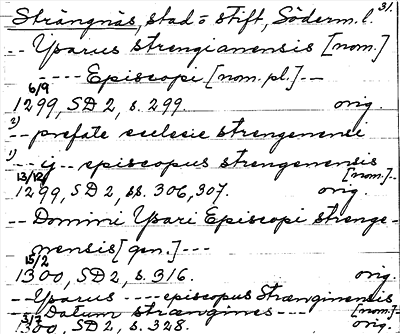 Strängnäs, stad o stift, Söderm. l. 31.
-- Ysarus strengianensis [nom.]
---- Episcopi [nom. pl.] --
6/9
1299, SD 2, s. 299. orig.
2) -- prefate ecclesie strengenensi
1) -- ij -- episcopus strengenensis [nom.] --
13/12
1299, SD 2, ss. 306, 307. orig.
-- Domini Ysari Episcopi strenge-
nensis [gen.] ---
15/2
1300, SD 2, s. 316. orig.
-- Ysarus ---- episcopus Strænginensis [nom.] --
-- Datum strængines ---
1300, SD 2, s. 328. orig.